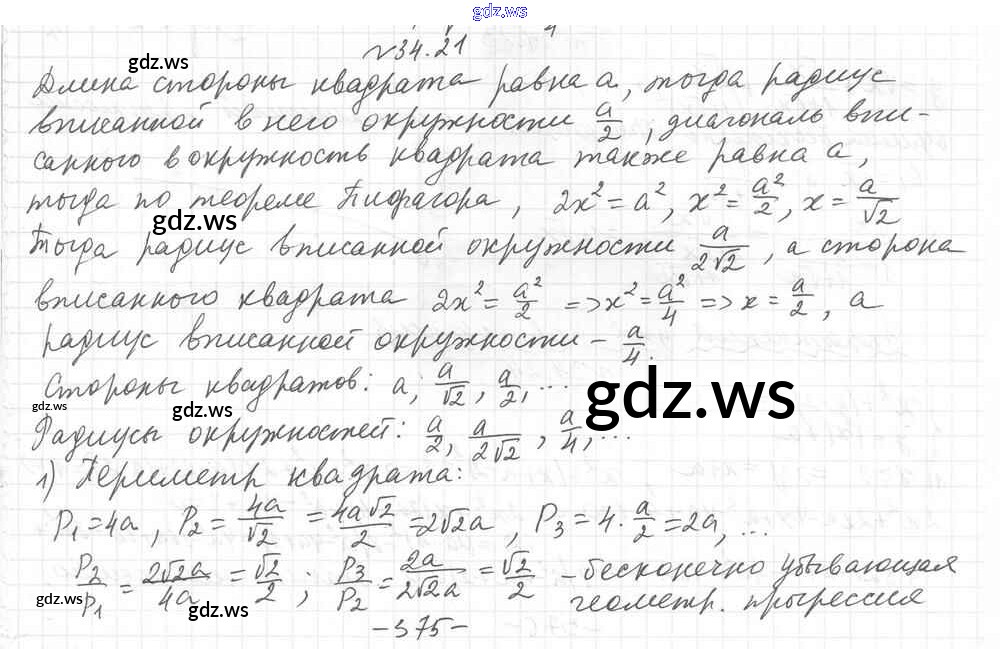 gdz.ws
№34.21
gdz.ws
Длина стороны квадрата равна a, тогда радиус
вписанной в него окружности a/2, диагональ впи-
санного в окружность квадрата также равна a,
тогда по теореме Пифагора, 2x² = a², x² = a²/2, x = a/√2
gdz.ws
Тогда радиус вписанной окружности a/2√2, а сторона
вписанного квадрата 2x² = a²/2 => x² = a²/4 => x = a/2, а
радиус вписанной окружности – a/4.
Стороны квадратов: a, a/√2, a/2, ...
gdz.ws
gdz.ws
gdz.ws
Радиусы окружностей: a/2, a/2√2, a/4, ...
1) Периметр квадрата:
P₁ = 4a, P₂ = 4a/√2 = 4a√2/2 = 2√2a, P₃ = 4·a/2 = 2a, ...
P₂/P₁ = 2√2a/4a = √2/2; P₃/P₂ = 2a/2√2a = √2/2 – бесконечно убывающая
геометр. прогрессия
gdz.ws
gdz.ws
gdz.ws
–375–